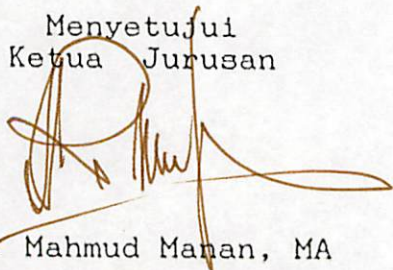 Menyetujui
Ketua Jurusan
Mahmud Manan, MA